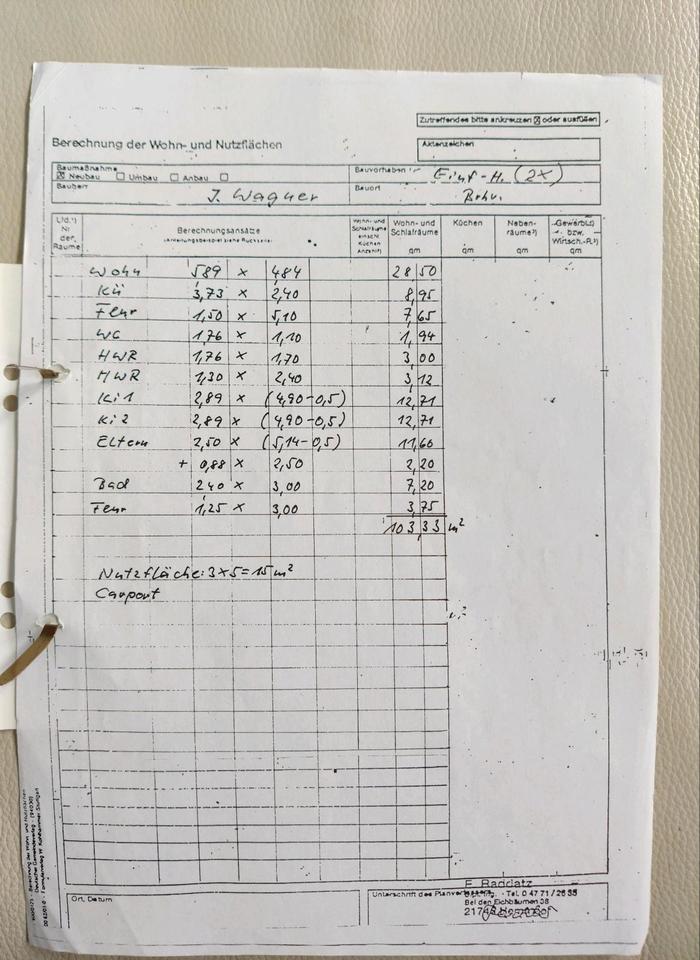 Zutreffendes bitte ankreuzen ☒ oder ausfüllen
Berechnung der Wohn- und Nutzflächen
Aktenzeichen
Baumaßnahme
☒ Neubau ☐ Umbau ☐ Anbau ☐
Bauvorhaben Einf-H. (2x)
Bauherr J. Wagner
Bauort Brhv.
Lfd.¹) Nr der Räume
Berechnungsansätze
(Anleitungsbeispiel siehe Rückseite)
Wohn- und Schlafräume einschl. Küchen Anzahl²)
Wohn- und Schlafräume qm
Küchen qm
Neben- räume³) qm
Gewerbl. bzw. Wirtsch.-R.³) qm
Wohn 5,89 x 4,84 28,50
Kü 3,73 x 2,40 8,95
Flur 1,50 x 5,10 7,65
WC 1,76 x 1,10 1,94
HWR 1,76 x 1,70 3,00
HWR 1,30 x 2,40 3,12
Ki 1 2,89 x (4,90-0,5) 12,71
Ki 2 2,89 x (4,90-0,5) 12,71
Eltern 2,50 x (5,14-0,5) 11,60
+ 0,88 x 2,50 2,20
Bad 2,40 x 3,00 7,20
Flur 1,25 x 3,00 3,75
103,33 m²
Nutzfläche: 3x5=15m²
Carport
Ort, Datum
Unterschrift des Planverfassers
F. Raddatz
Tel. 0 47 71 / 26 35
Bei den Eichbäumen 38
Berechnung der Wohn- und Nutzflächen
Deutscher Gemeindeverlag